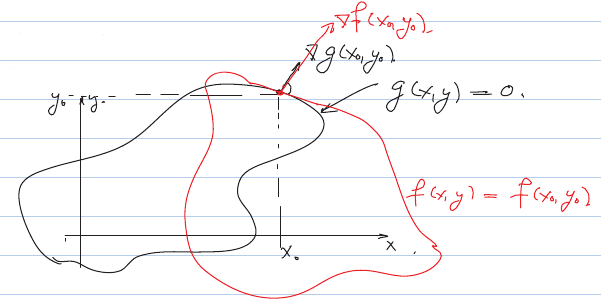 ∇f(x₀,y₀).
∇g(x₀,y₀).
g(x,y) = 0.
y₀ y
f(x,y) = f(x₀,y₀)
x₀ x